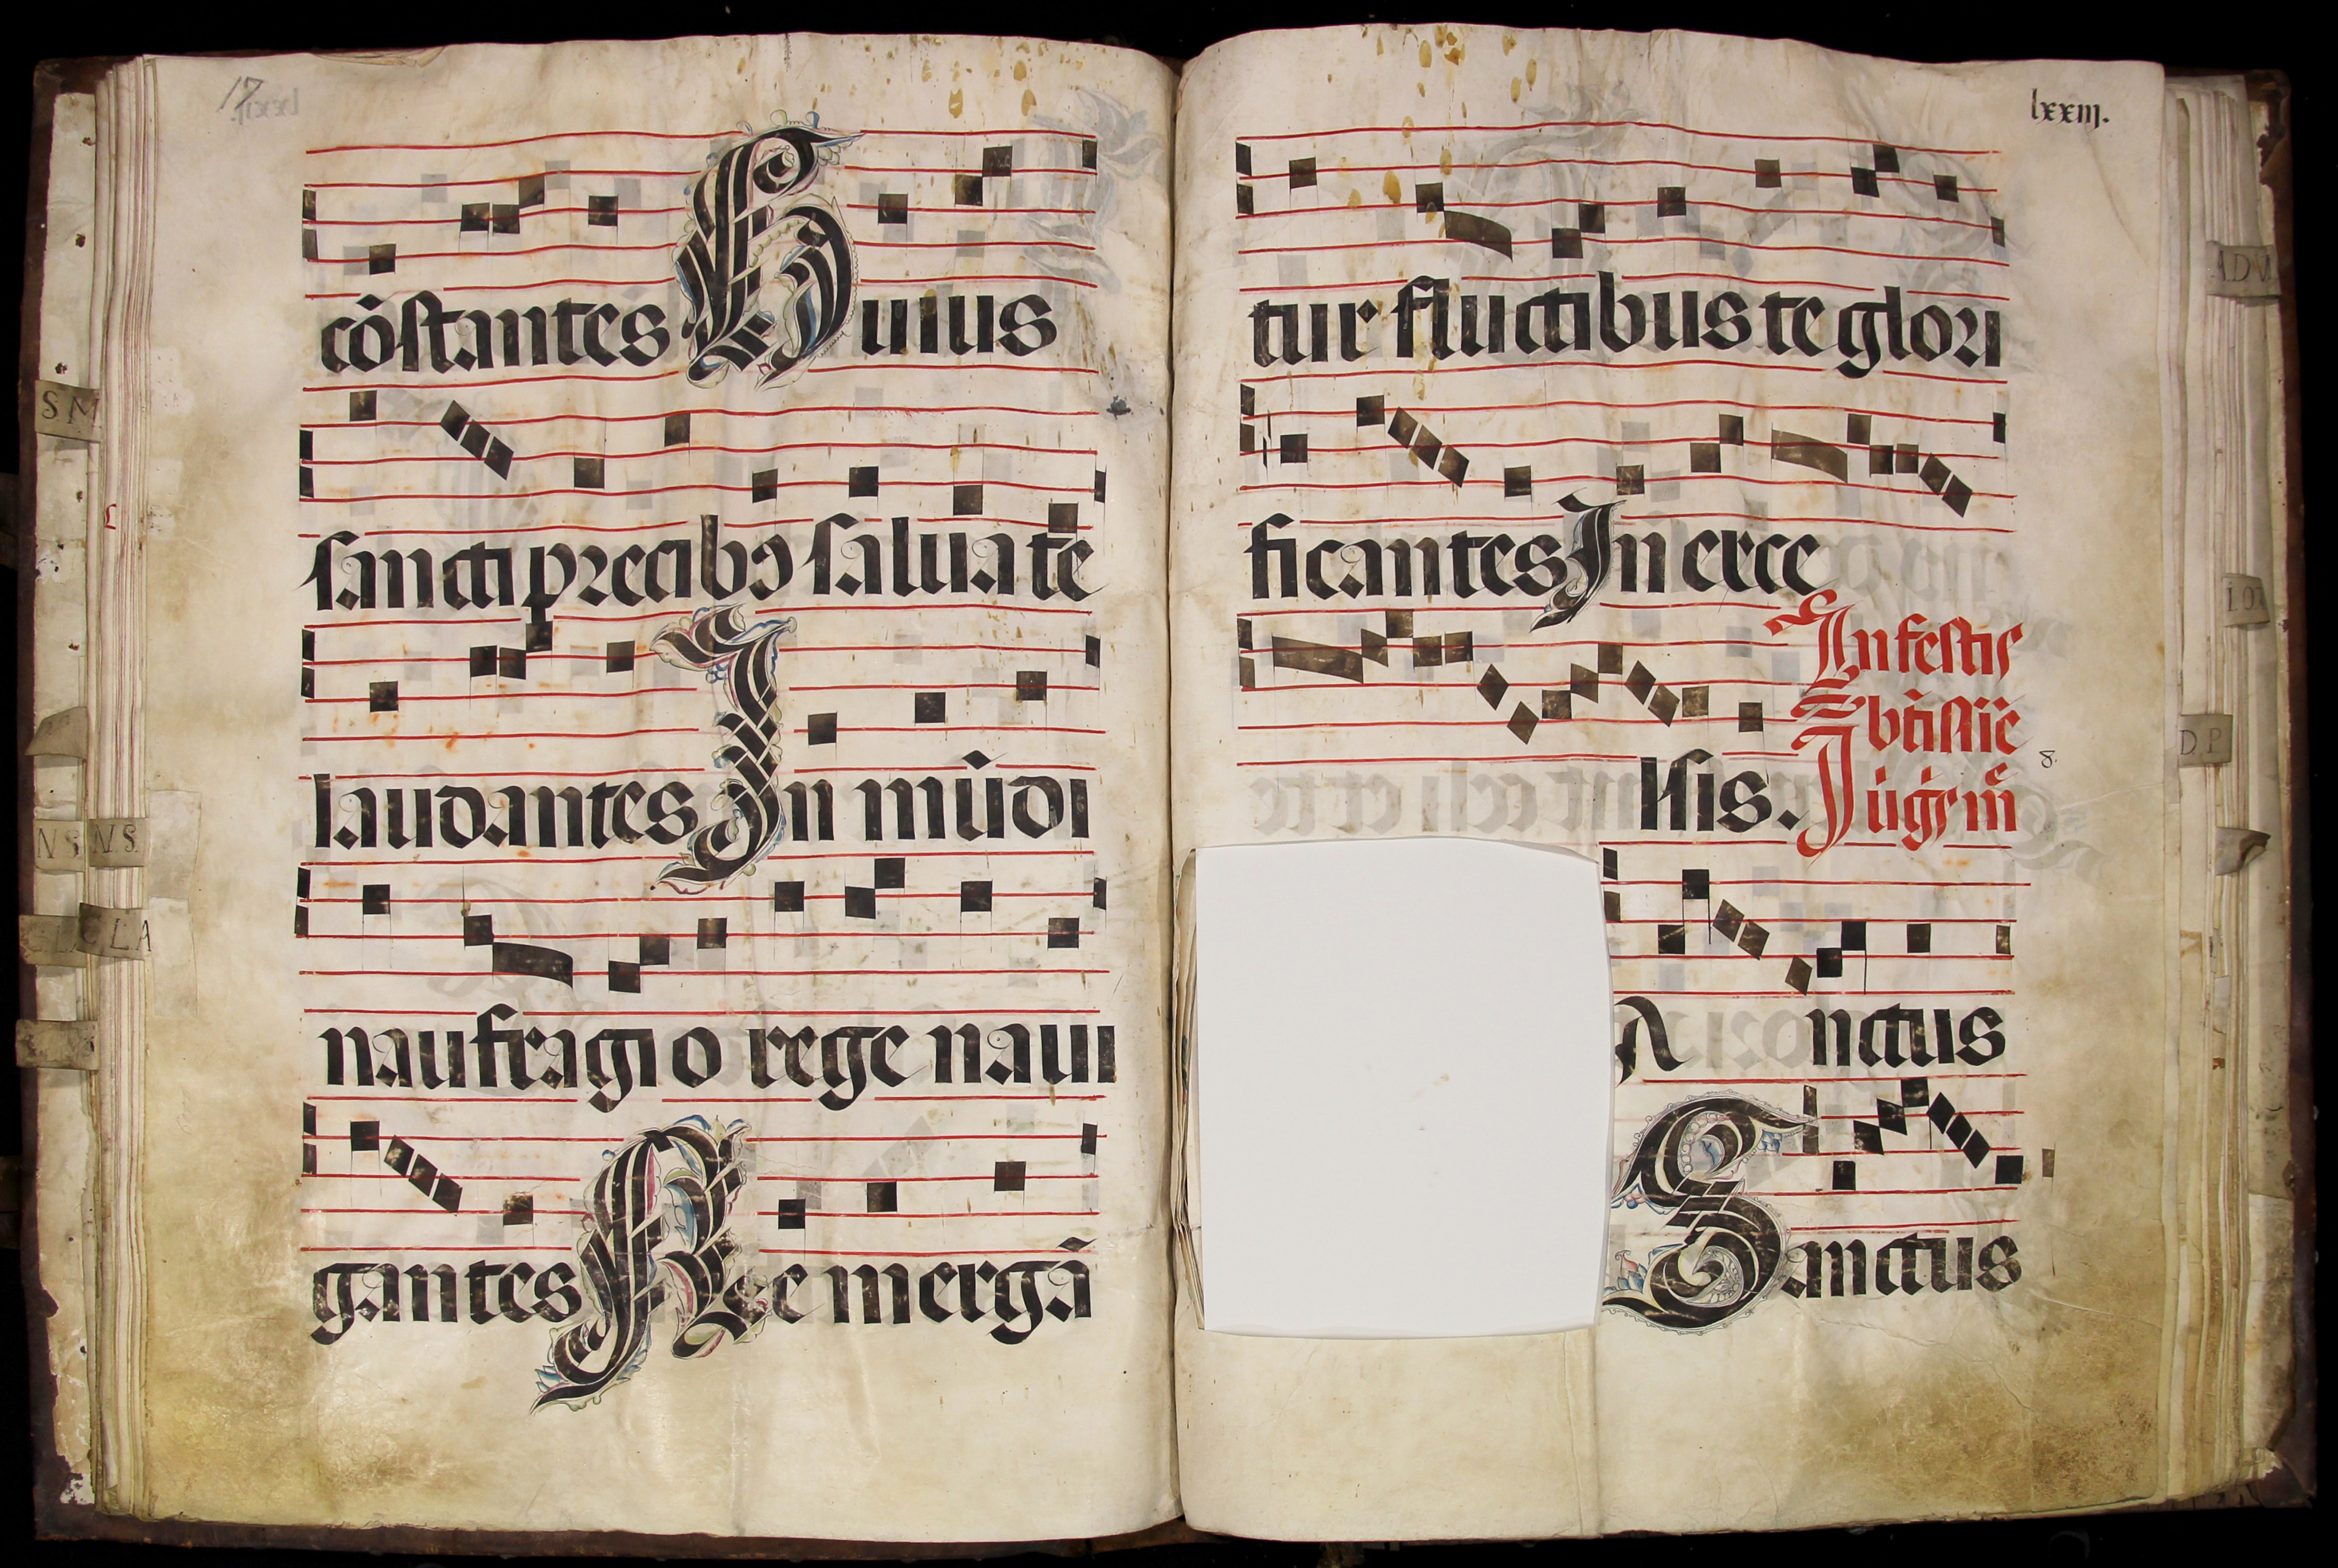 17
cõstantes Huius
sancti precibꝰ salua te
laudantes In mũdi
naufragio rege naui
gantes Ne mergã
lxxiij.
tur fluctibus te glori
ficantes In exce
lsis.
In festis
btĩssiẽ
8.
anctus
Sanctus
S M
N S
N.S.
LA
ADV
D.P.